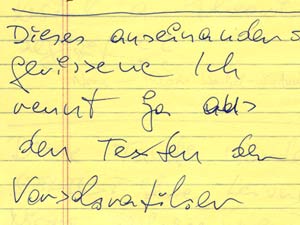 Dieses auseinander
gerissene Ich
nennt Ga aus
den Texten der
Vorsokratiker